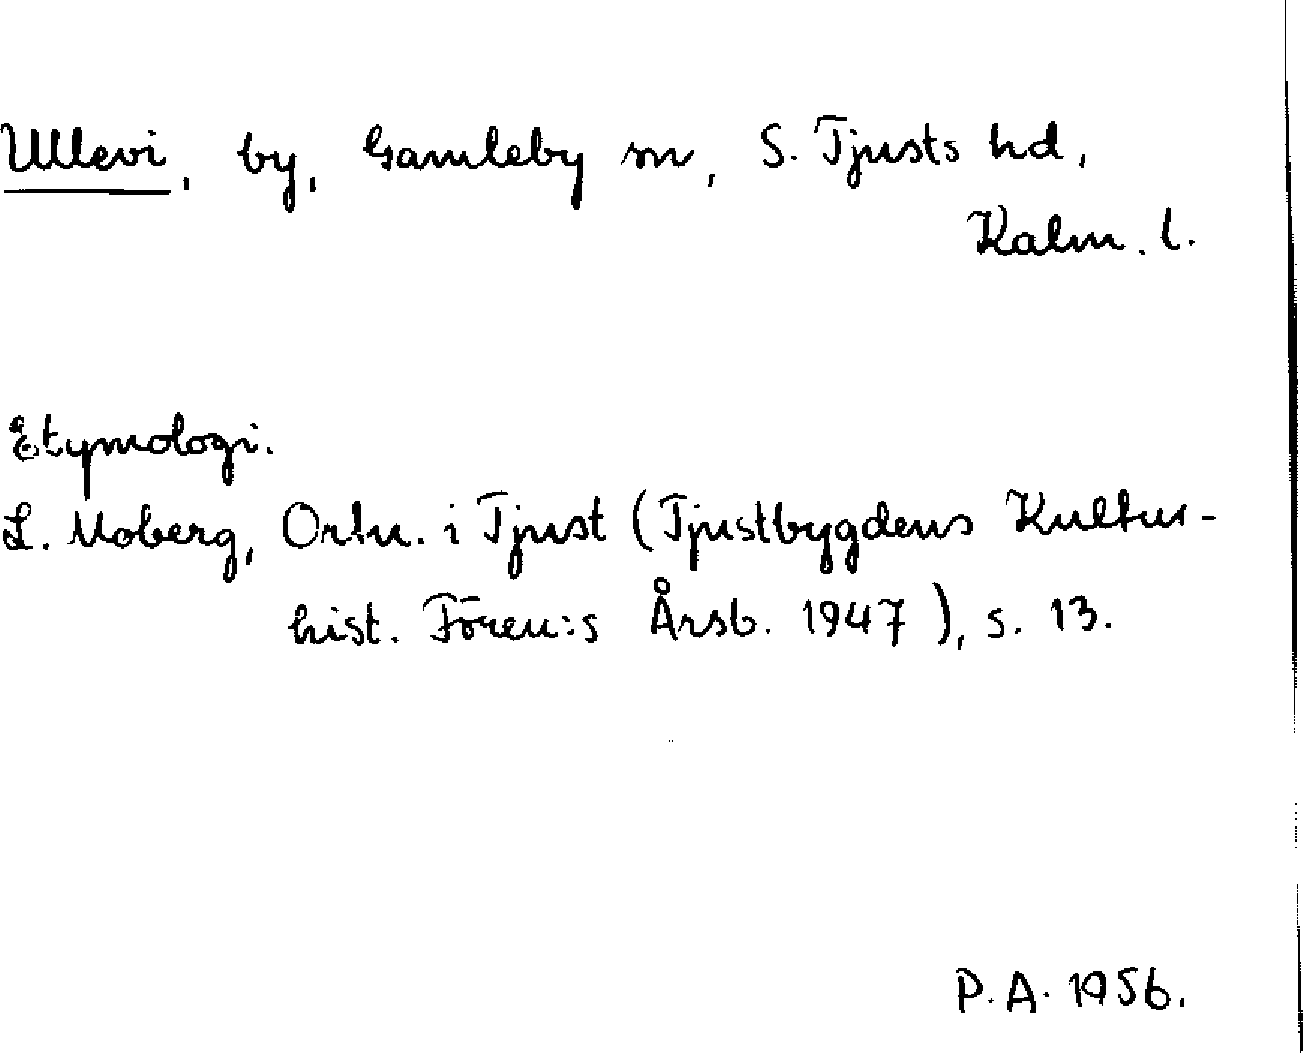 Ullevi, by, Gamleby sn, S. Tjusts hd,
Kalm. l.
Etymologi.
L. Moberg, Ortn. i Tjust (Tjustbygdens Kultur-
hist. Fören:s Årsb. 1947), s. 13.
P.A. 1956.